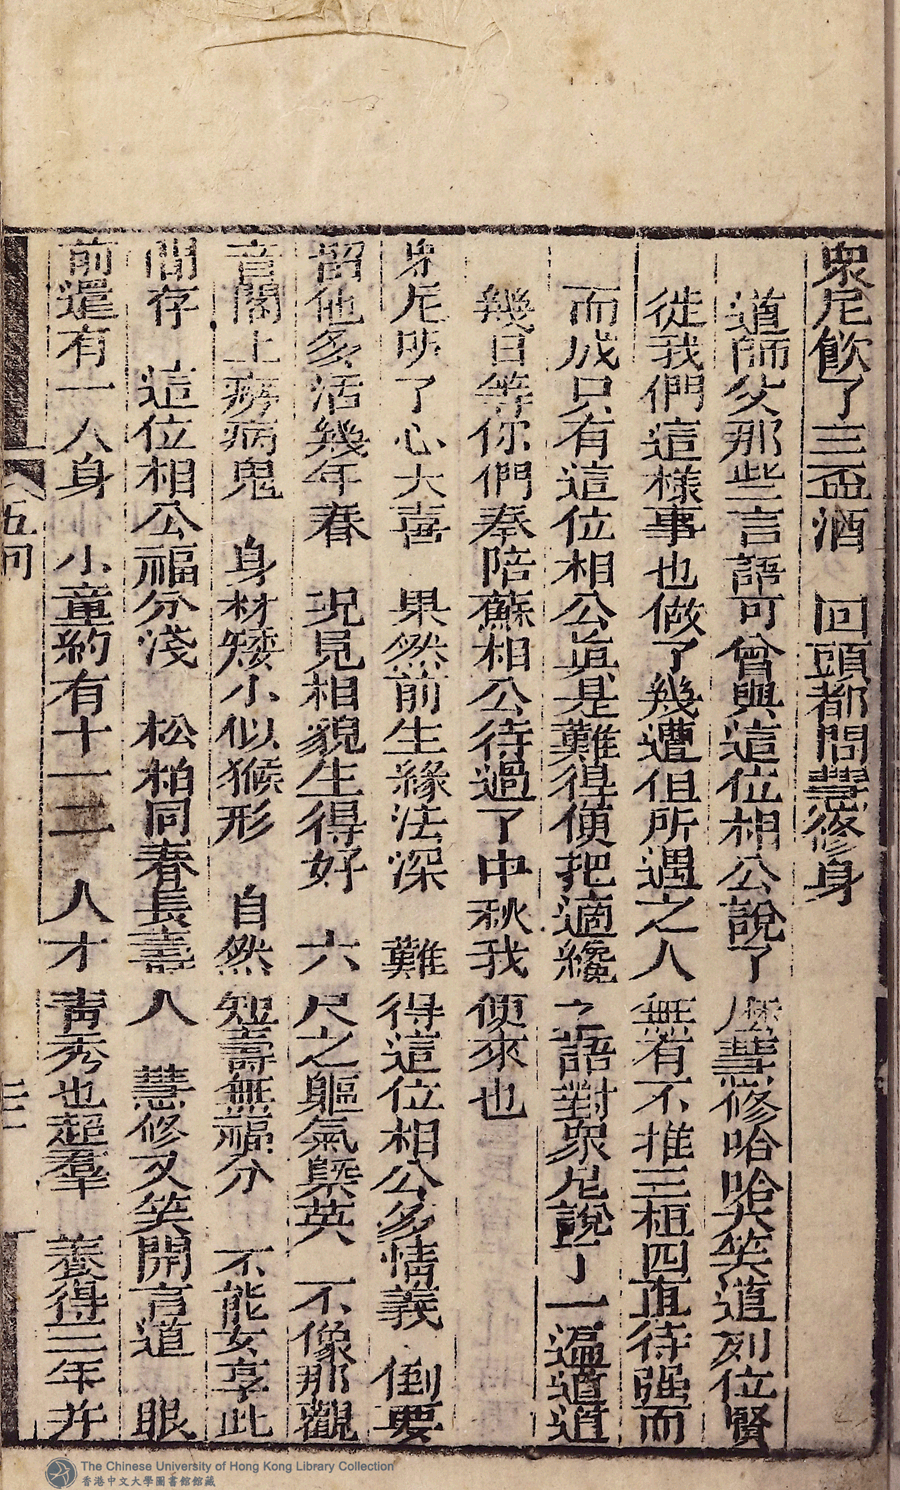 衆尼飲了三盃酒　回頭都問慧修身
道師父那些言語可曾與這位相公說了麽慧修哈哈大笑道列位賢
徒我們這樣事也做了幾遭但所遇之人無有不推三阻四直待强而
而成只有這位相公眞是難得便把適纔之語對衆尼說了一遍道道
幾日等你們奉陪蘇相公待過了中秋我便來也
衆尼听了心大喜　果然前生緣法深　難得這位相公多情義　倒要
留他多活幾年春　况見相貌生得好　六尺之軀氣槩英　不像那觀
音閣上癆病鬼　身材矮小似猴形　自然短壽無福分　不能安享此
間存　這位相公福分淺　松柏同春長壽人　慧修又笑開言道　眼
前還有一人身　小童約有十一二　人才青秀也超羣　養得三年并
五回
The Chinese University of Hong Kong Library Collection
香港中文大學圖書館館藏